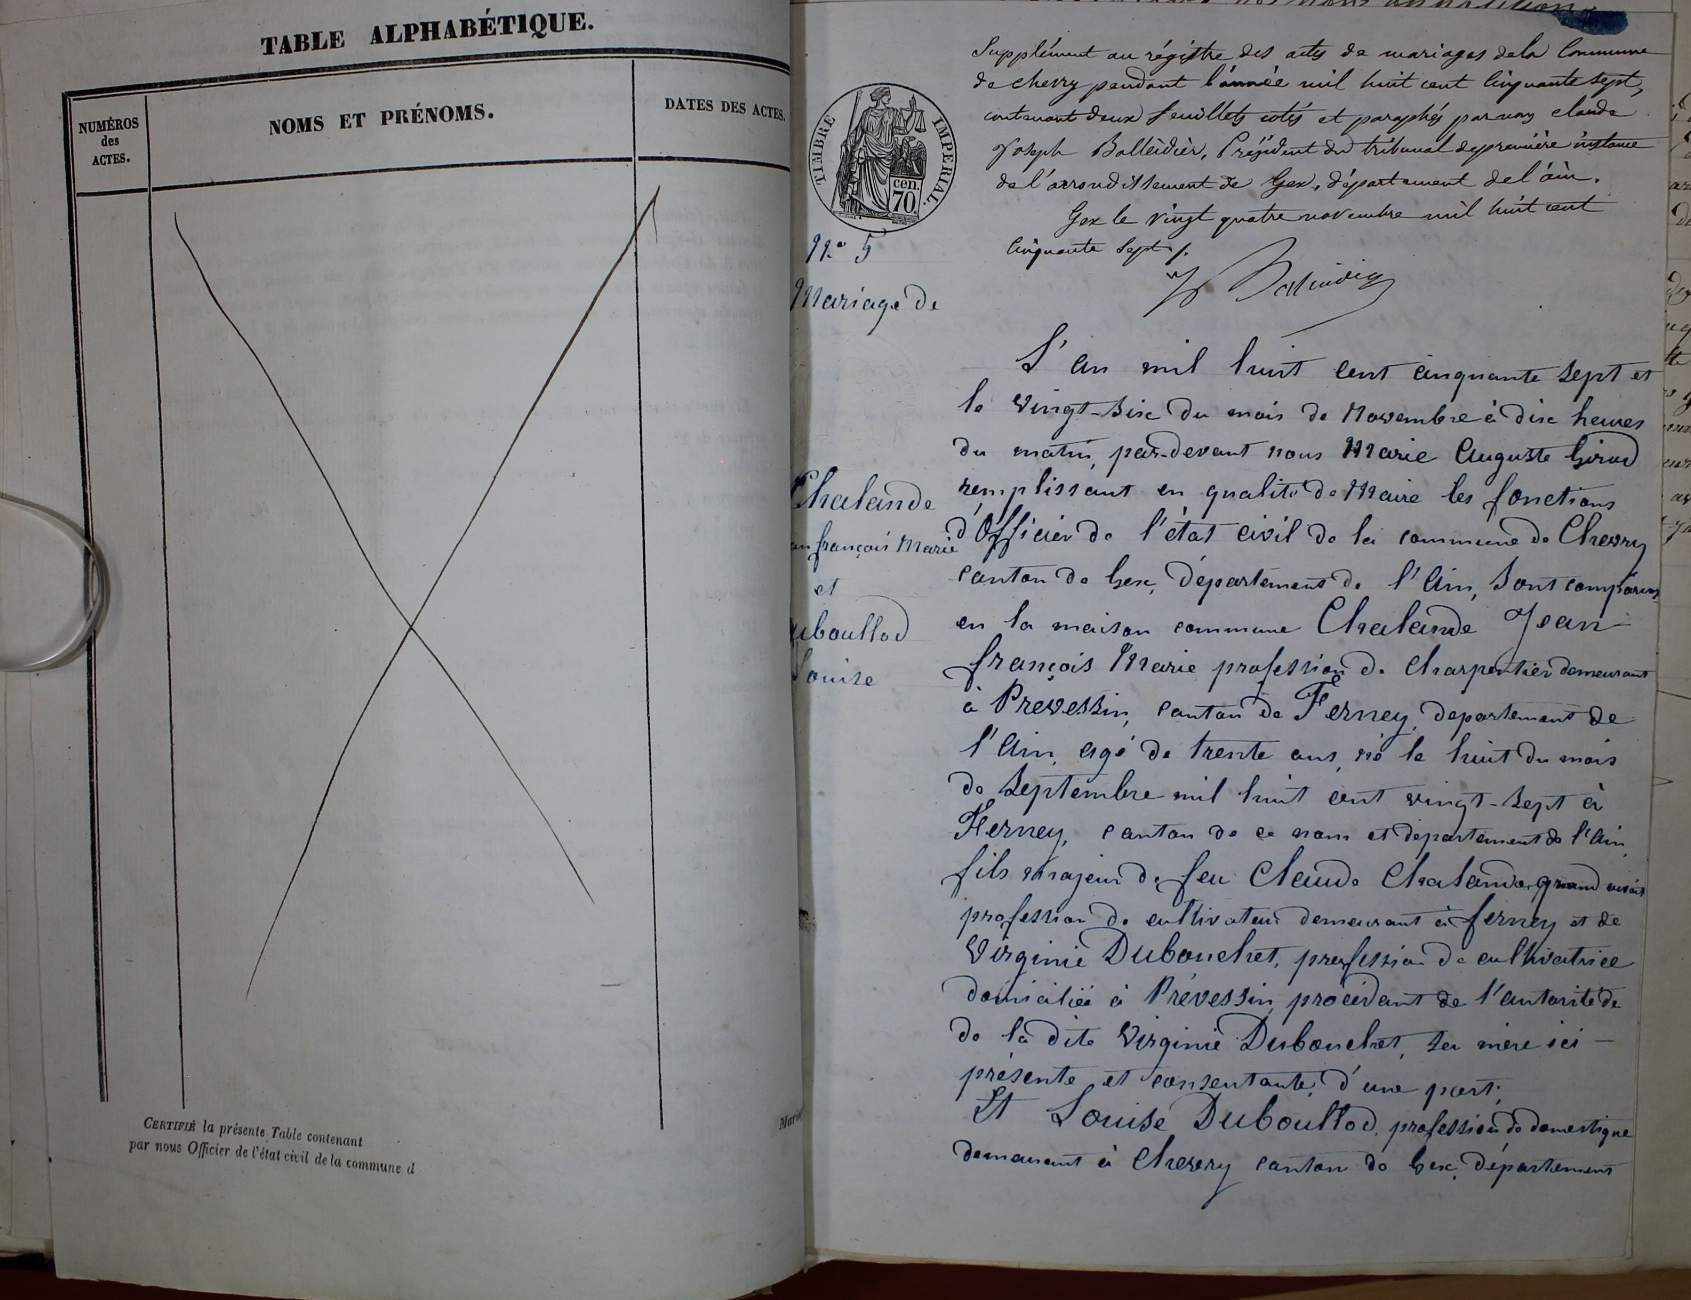 TABLE ALPHABÉTIQUE.
NUMÉROS
des
ACTES.
NOMS ET PRÉNOMS.
DATES DES ACTES.
CERTIFIÉ la présente Table contenant
par nous Officier de l'état civil de la commune d
Supplément au régistre des actes de mariages de la Commune
de Chevry pendant l'année mil huit cent Cinquante sept,
contenant deux feuillets cotés et paraphés par nous claude
Joseph Balleidier, Président du tribunal de première instance
de l'arrondissement de Gex, département de l'ain.
Gex le vingt quatre novembre mil huit cent
Cinquante Sept ./.
TIMBRE IMPERIAL.
cen.
70
No 5
Mariage de
Chalande
françois Marie
et
Duboullod
Louise
L'an mil huit cent cinquante sept et
le vingt-six du mois de Novembre à dix heures
du matin, par-devant nous Marie Auguste Girod
remplissant en qualité de Maire les fonctions
d'Officier de l'état civil de la commune de Chevry
canton de Gex, Département de l'Ain, Sont comparus
en la maison commune Chalande Jean
françois Marie profession de Charpentier demeurant
à Prévessin, canton de Ferney, departement de
l'Ain, agé de trente ans, né le huit du mois
de Septembre mil huit cent vingt-sept à
Ferney, canton de ce nom et département de l'Ain,
fils majeur de feu Claude Chalande, quand vivait
profession de cultivateur demeurant à ferney et de
Virginie Dubouchet, profession de cultivatrice
domiciliée à Prévessin, procédant de l'autorité de
de la dite Virginie Dubouchet, sa mère ici
présente et consentante, d'une part;
Et Louise Duboullod, profession de domestique
demeurant à Chevry canton de Gex, département